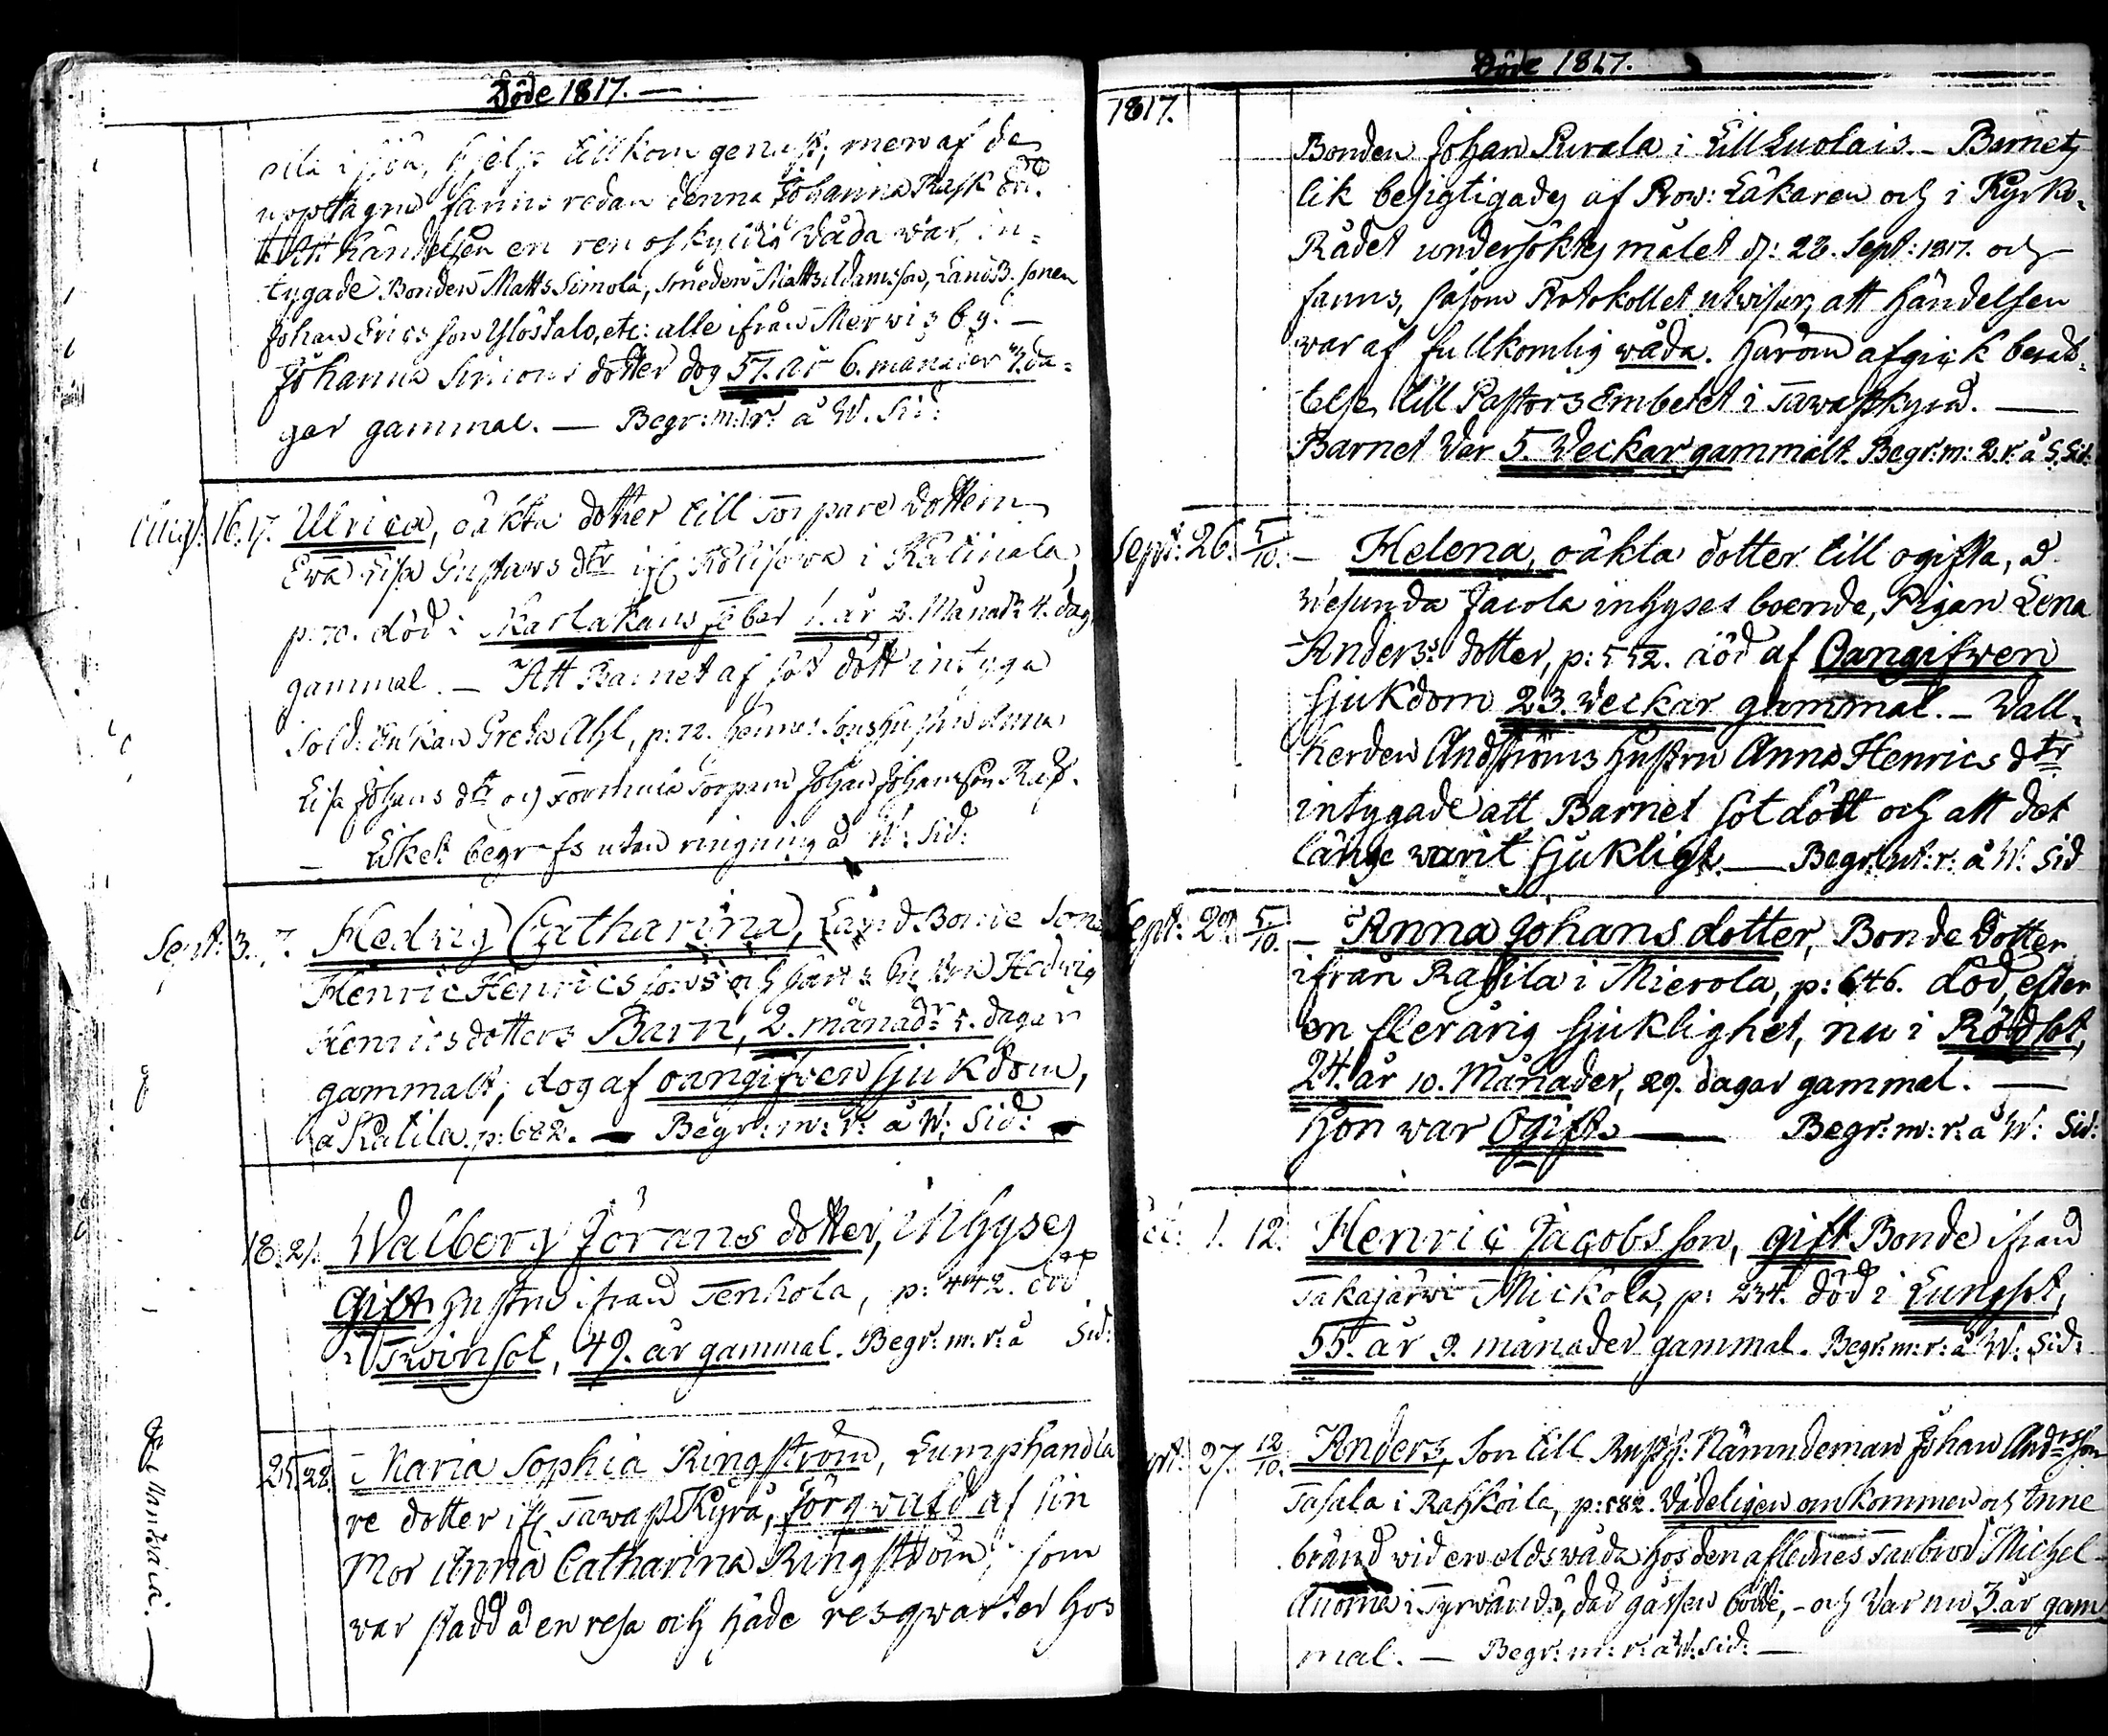 Döde 1817. —
i sjön, hjelp tillkom genast; men af de
upptagne fanns redan denna Johanna Rask död.
Att händelsen en ren oskyldig wåda war, in-
tygade Bonden Matts Simola, Matts Adamsson, Landb. sonen
Johan Ericsson Ylöstalo, etc: alle ifrån Merwis by. —
Johanna Simons dotter dog 57. år 6. månader da-
gar gammal. — Begr: m: r: å W. Sid:
Aug: 16. 17. Ulrica, oäkta dotter till Torpare dottern
Ewa Lisa Gustavs dtr ifr i Kulinala,
p: 70. död i Skarlakans feber 1. år 2. Månadr 4. dag
gammal. — Att Barnet af sot dödt intyga
Sold: Enkan Greta Ahl, p: 72. hennes sonshustru Anna
Lisa Johans dtr och Torparen Johan Johansson
— Liket begrofs utan ringning å W: Sid:
Sept: 3. 7. Hedwig Catharina, Landbonde Sonen
Henric Henricssons och hans hustru Hedwig
Henricsdotters Barn, 2. månadr 5. dagar
gammalt, dog af oangifwen sjukdom,
å Katila, p: 682. — Begr: m: r: å W: Sid: —
18. 21. Walborg Jörans dotter, inhyses
Gift hustru ifrån Tenhola, p: 442. död
i Twinsot, 49. år gammal. Begr: m: r: å Sid:
25 28 Maria Sophia Ringström, Lumphandla
re dotter ifr Tawastkyrö, förqwafd af sin
Mor Anna Catharina Ringström, som
war stadd å en resa och hade resqwarter hos
Döde 1817.
1817.
Bonden Johan Purala i Lill Luolais. — Barnets
lik besigtigades af Prow: Läkaren och i Kyrko-
Rådet undersöktes målet d: 28. Sept: 1817. och
fanns, såsom Protokollet utwisar, att händelsen
war af fullkomlig wåda. Härom afgick berät-
telse till Pastors Embetet i Tawastkyrö. —
Barnet War 5. Weckar gammalt. Begr: m: 2. r. å S. Sid:
Sept: 26. 5/10. — Helena, oäkta dotter till ogifta, å
Wesunda Jacola inhyses boende, Pigan Lena
Anders dotter, p: 552. död af Oangifwen
sjukdom 23. weckar gammal. — Wall-
herden Andströms hustru Anna Henrics dtr
intygade att Barnet sotdödt och att det
länge warit sjukligt. — Begr: ut: r: å W: Sid
Sept: 29. 5/10. — Anna Johans dotter, Bonde Dotter
ifrån Rassila i Mierola, p: 646. död, efter
en flerårig sjuklighet, nu i Rödsot,
24. år 10. Månader, 29. dagar gammal. —
Hon war Ogift. — Begr: m: r: å W: Sid:
1. 12. Henric Jacobs son, gift Bonde ifrån
Takajärwi Mickola, p: 234. död i Lungsot,
55. år 9. månader gammal. Begr: m: r: å W: Sid:
27. 12/10. Anders, Son till Rusth: Nämndeman Johan Andersson
Tasala i Rahkoila, p: 582. wådeligen omkommen och Inne
bränd wid en eldswåda hos den aflednes Farbrod Michel
i Tyrwändö, dåd gossen bodde, — och War nu 3. år gam
mal. — Begr: m: r: å W: Sid: —